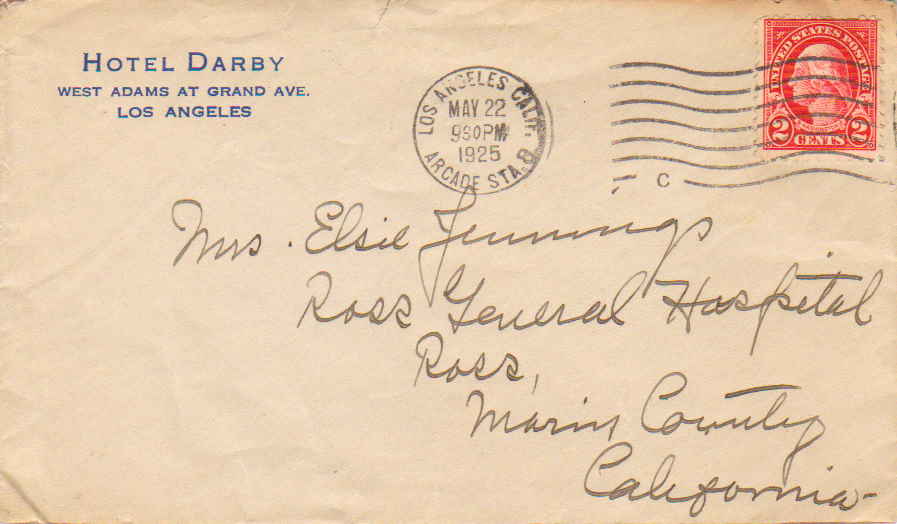 HOTEL DARBY
WEST ADAMS AT GRAND AVE.
LOS ANGELES
LOS ANGELES CALIF.
MAY 22
930PM
1925
ARCADE STA.
C
UNITED STATES POSTAGE
2 CENTS 2
Mrs. Elsie Jennings
Ross General Hospital
Ross,
Marin County
California